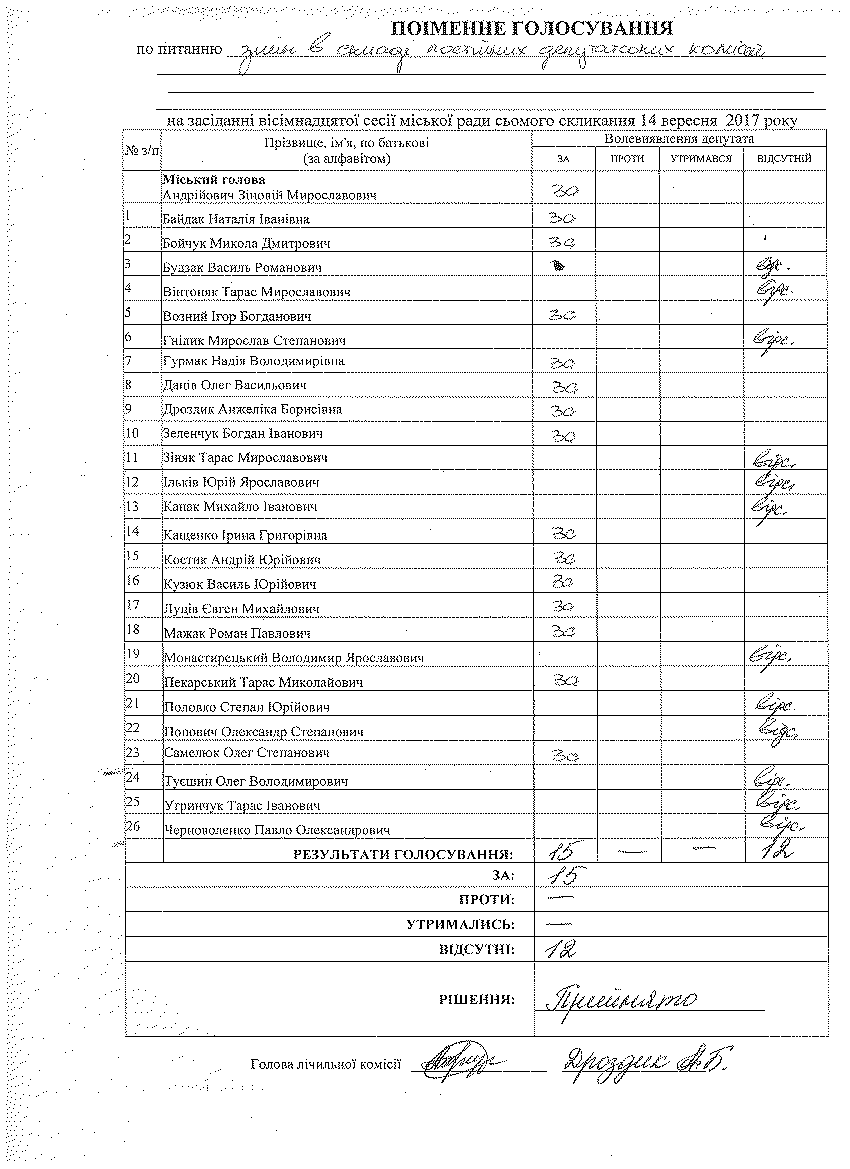 ПОІМЕННЕ ГОЛОСУВАННЯ
по питанню зміни в складі постійних депутатських комісій
на засіданні вісімнадцятої сесії міської ради сьомого скликання 14 вересня 2017 року
№ з/п Прізвище, ім'я, по батькові (за алфавітом) Волевиявлення депутата
ЗА ПРОТИ УТРИМАВСЯ ВІДСУТНІЙ
Міський голова
Андрійович Зіновій Мирославович за
1 Байдак Наталія Іванівна за
2 Бойчук Микола Дмитрович за
3 Будзак Василь Романович відс.
4 Вінтоняк Тарас Мирославович відс.
5 Возний Ігор Богданович за
6 Гнідик Мирослав Степанович відс.
7 Гурмак Надія Володимирівна за
8 Данів Олег Васильович за
9 Дроздик Анжеліка Борисівна за
10 Зеленчук Богдан Іванович за
11 Зіняк Тарас Мирославович відс.
12 Ільків Юрій Ярославович відс.
13 Капак Михайло Іванович відс.
14 Кащенко Ірина Григорівна за
15 Костик Андрій Юрійович за
16 Кузюк Василь Юрійович за
17 Луців Євген Михайлович за
18 Мажак Роман Павлович за
19 Монастирецький Володимир Ярославович відс.
20 Пекарський Тарас Миколайович за
21 Половко Степан Юрійович відс.
22 Попович Олександр Степанович відс.
23 Самелюк Олег Степанович за
24 Туєшин Олег Володимирович відс.
25 Угринчук Тарас Іванович відс.
26 Черноволенко Павло Олександрович відс.
РЕЗУЛЬТАТИ ГОЛОСУВАННЯ: 15 — — 12
ЗА: 15
ПРОТИ: —
УТРИМАЛИСЬ: —
ВІДСУТНІ: 12
РІШЕННЯ: Прийнято
Голова лічильної комісії Дроздик А.Б.